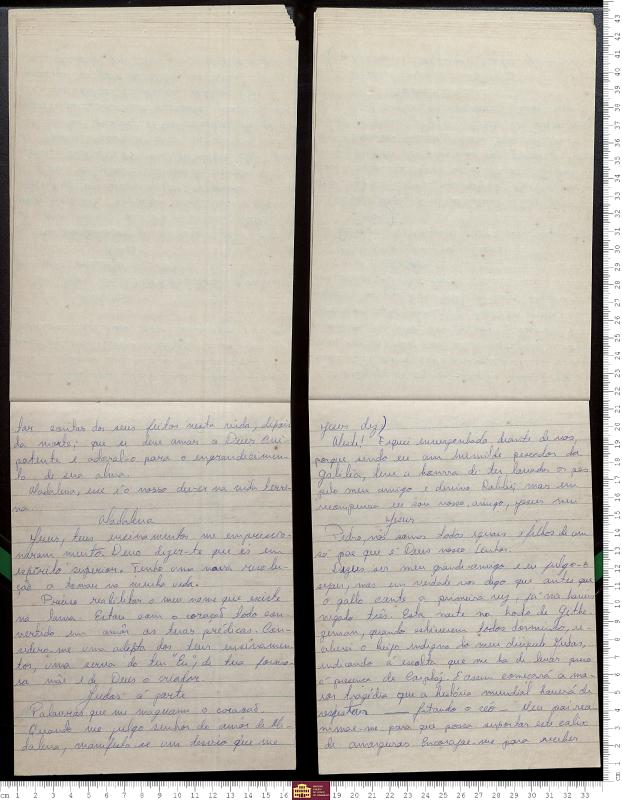 tar contas dos seus feitos nesta vida, depois
da morte; que se deve amar a Deus oni
potente e adoral-o para o engrandecimen-
to de sua alma.
Madalena, esse é o nosso dever na vida terre-
na.
Madalena
Jesus, teus ensinamentos me impressio-
naram muito. Devo dizer-te que és um
espírito superior. Tenho uma nova resolu-
ção a tomar na minha vida.
Preciso reabilitar o meu nome que existe
na lama. Estou com o coração todo con-
vertido em amôr as tuas prédicas. Con-
sidero-me uma adepta dos teus ensinamen-
tos, uma serva do teu de tua formo-
sa mãe e de Deus o criador.
Judas á parte
Palavras que me magoam o coração.
Quando me julgo senhor do amor de Ma
dalena, manifesta-se um desvio que me
Jesus diz)
Mestre! Fiquei envergonhado diante de nós,
porque sendo eu um humilde pescador da
Galiléia, tive a honra de ter lavados os pés
pelo meu amigo e divino Rabbi; mas em
recompensa eu sou vosso amigo, Jesus meu
Jesus
Pedro, nós somos todos iguais e filhos de um
só pae que é Deus nosso Senhor.
Dizeis ser meu grande amigo e eu julgo-o
ser; mas em verdade vos digo que antes que
o gallo cante a primeira vez, já me haveis
negado três. Esta noite no horto de Gethe-
zeman, quando estiverem todos dormindo, re-
ceberei o beijo indigno do meu discípulo Judas,
indicando á escolta que me ha de levar para
a presença de Caiphaz. E assim começará a ma-
ior tragédia que a história mundial haverá de
registrar — fitando o céo — Meu pai rea
nimae-me para que possa suportar este calix
de amarguras. Encorajae-me para receber
cm 1 2 3 4 5 6 7 8 9 10 11 12 13 14 15 16
19 20 21 22 23 24 25 26 27 28 29 30 31 32 33